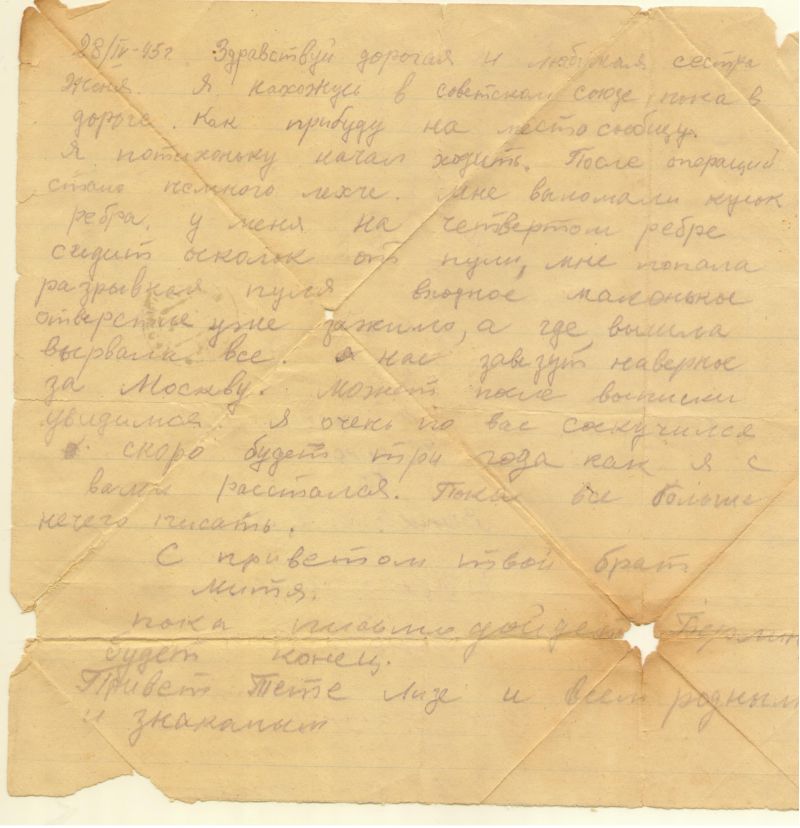 28/IV-45г. Здравствуй дорогая и любимая сестра
Женя. Я нахожусь в советском союзе, пока в
дороге. Как прибуду на место сообщу.
Я потихоньку начал ходить. После операций
стало немного лехче. Мне выломали кусок
ребра. у меня на четвертом ребре
сидит осколок от пули, мне попала
разрывная пуля входное маленькое
отверстие уже зажило, а где вышла
вырвала все. нас завезут наверное
за Москву. Может после выписки
увидимся. Я очень по вас соскучился
скоро будет три года как я с
вами расстался. Пока все больше
нечего писать.
С приветом твой брат
Митя.
пока письмо дойдет
будет конец.
Привет Тете Лизе и всем родным
и знакомым